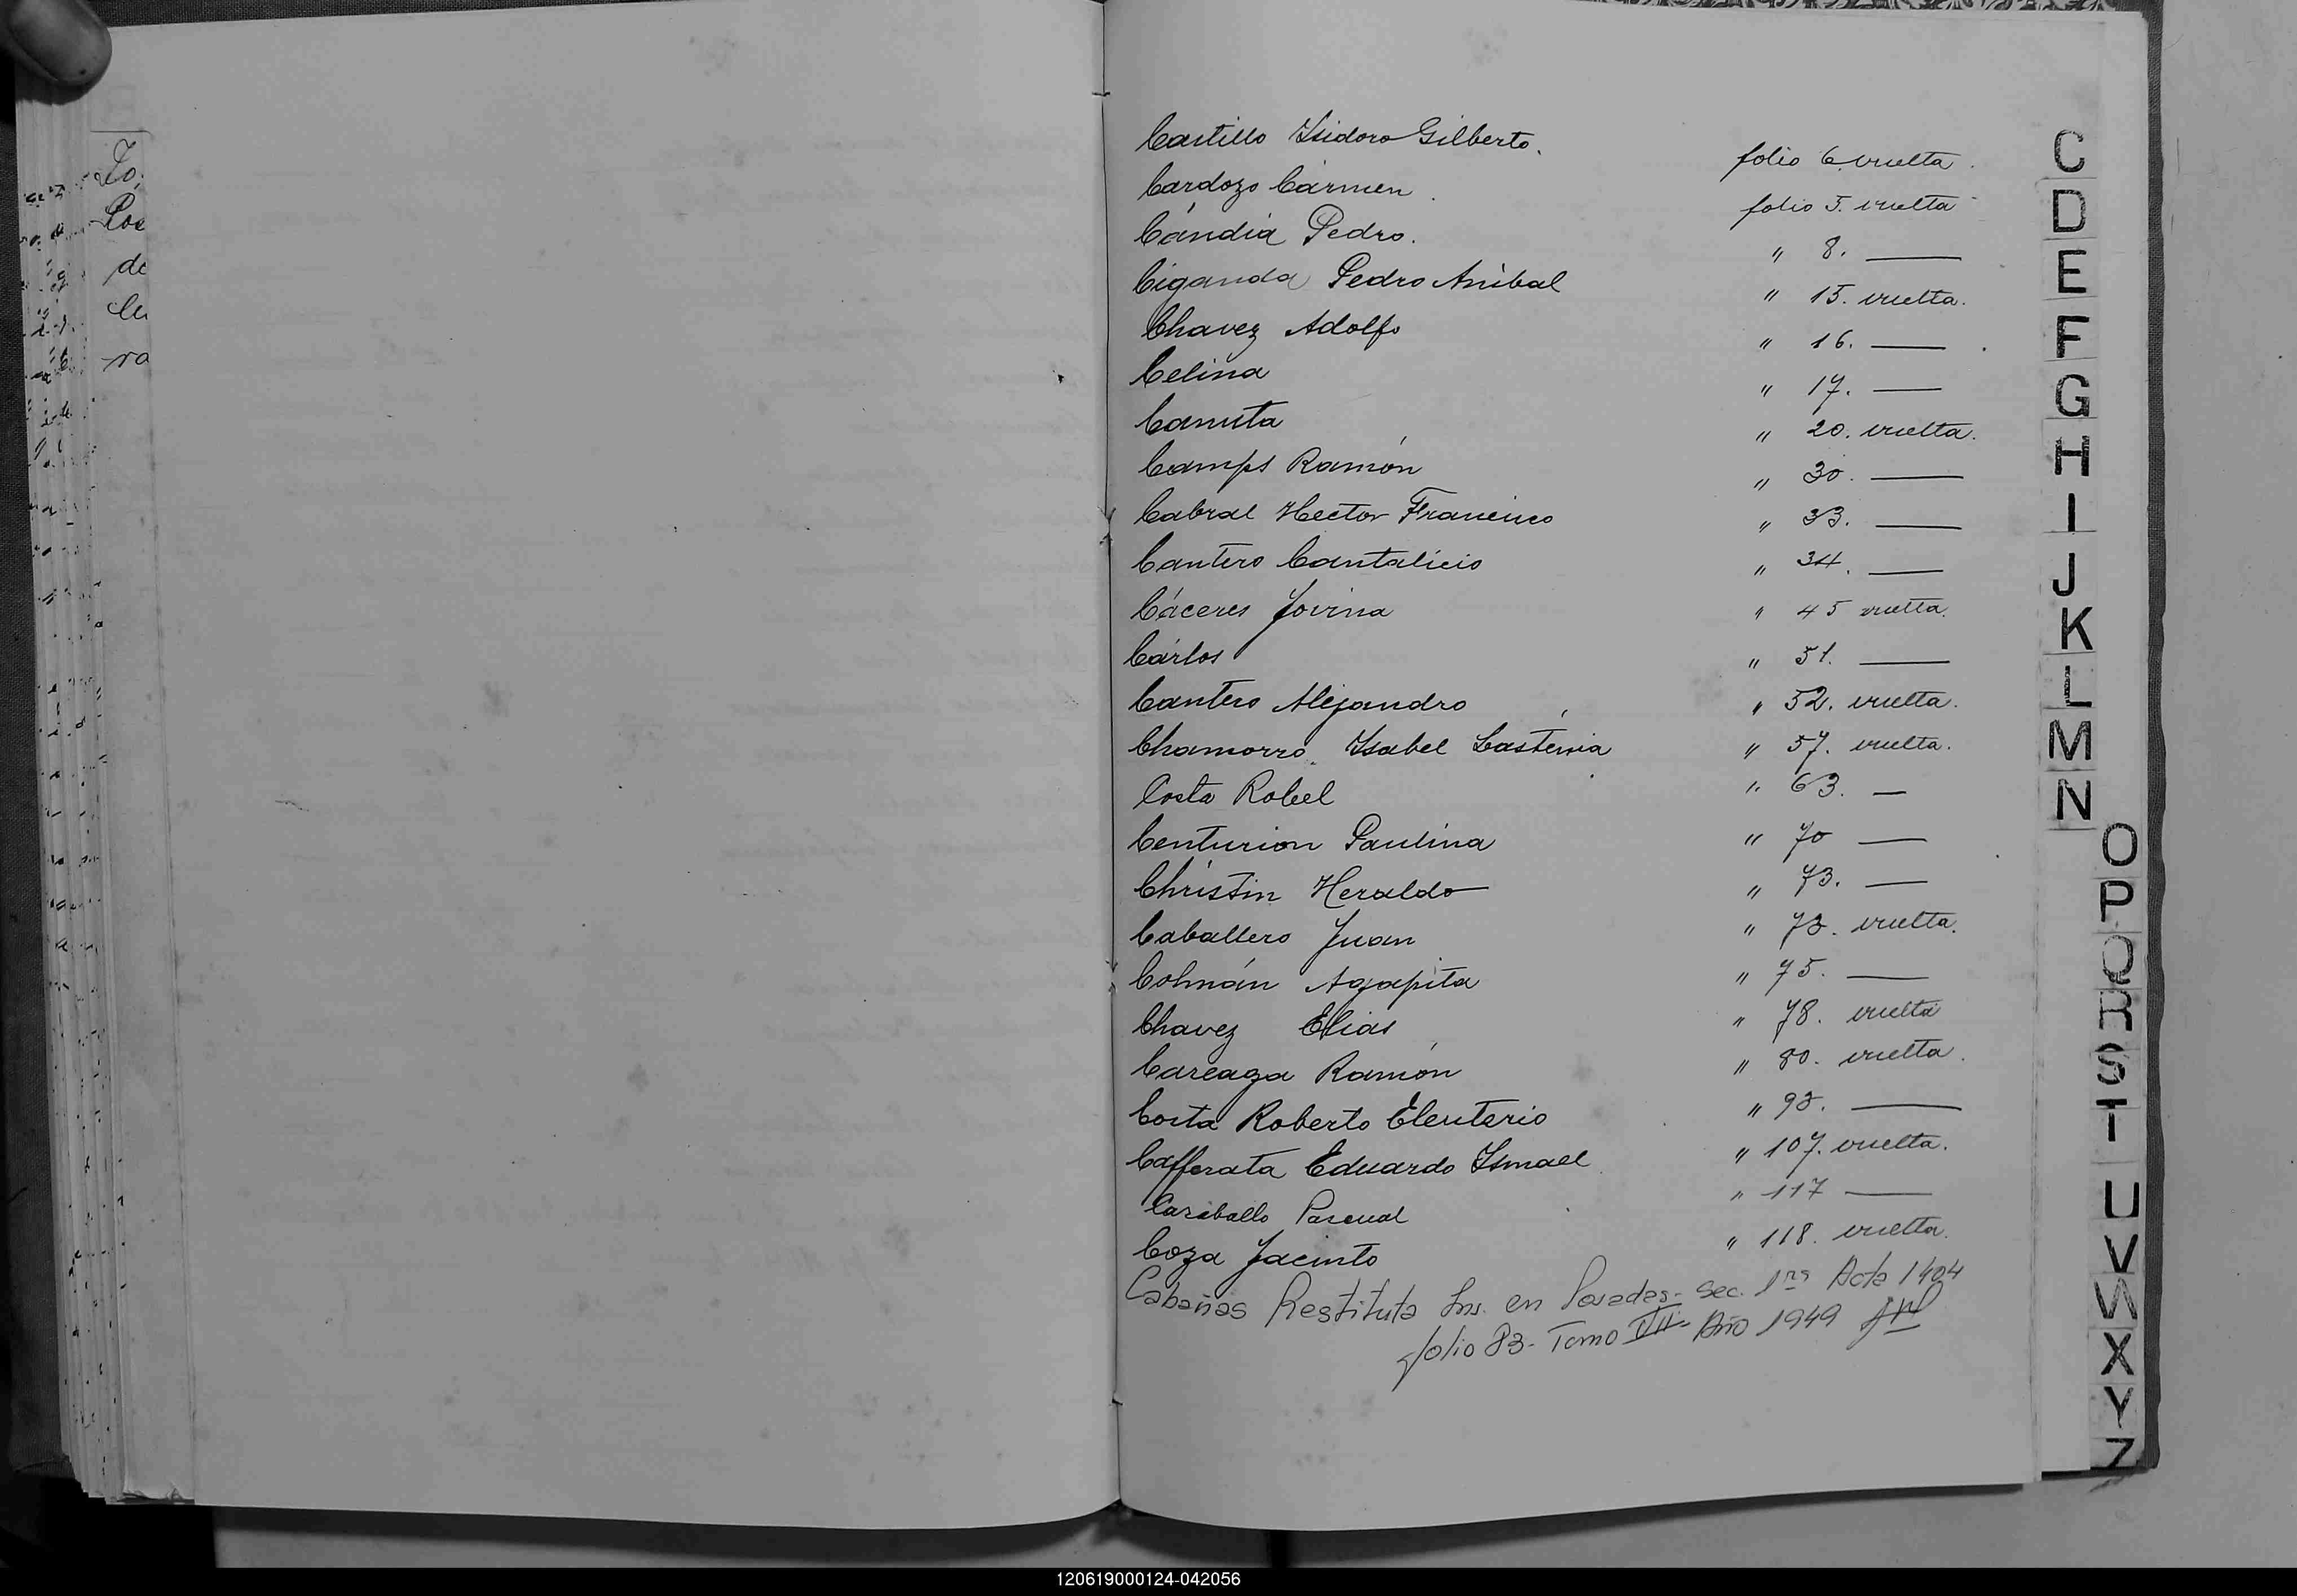 To,
Pos
de
cu
ra
Castillo Isidoro Gilberto. folio 6 vuelta.
Cardozo Cármen. folio 5. vuelta
Cándia Pedro. " 8. ——
Ciganda Pedro Aníbal " 15. vuelta.
Chavez Adolfo " 16. ——
Celina " 17. ——
Canuta " 20. vuelta.
Camps Ramón " 30. ——
Cabral Hector Francisco " 33. ——
Cantero Cantalicio " 34. ——
Cáceres Jovina " 45 vuelta.
Cárlos " 51. ——
Cantero Alejandro " 52. vuelta.
Chamorro Isabel Lasténia " 57. vuelta.
Costa Robel " 63. —
Centurion Paulina " 70 ——
Christin Heraldo " 73. ——
Caballero Juan " 73. vuelta.
Colmán Agapita " 75. ——
Chavez Elias " 78. vuelta
Careaga Ramón " 80. vuelta.
Costa Roberto Eleuterio " 93. ——
Cafferata Eduardo Ismael " 107. vuelta.
Caraballo Pascual " 117 ——
Coza Jacinto " 118. vuelta.
Cabañas Restituta Ins. en Posadas- Sec. 1ra Acta 1404
folio 83- Tomo VII- Año 1949
C
D
E
F
G
H
I
J
K
L
M
N
O
P
Q
R
S
T
U
V
W
X
Y
Z
120619000124-042056